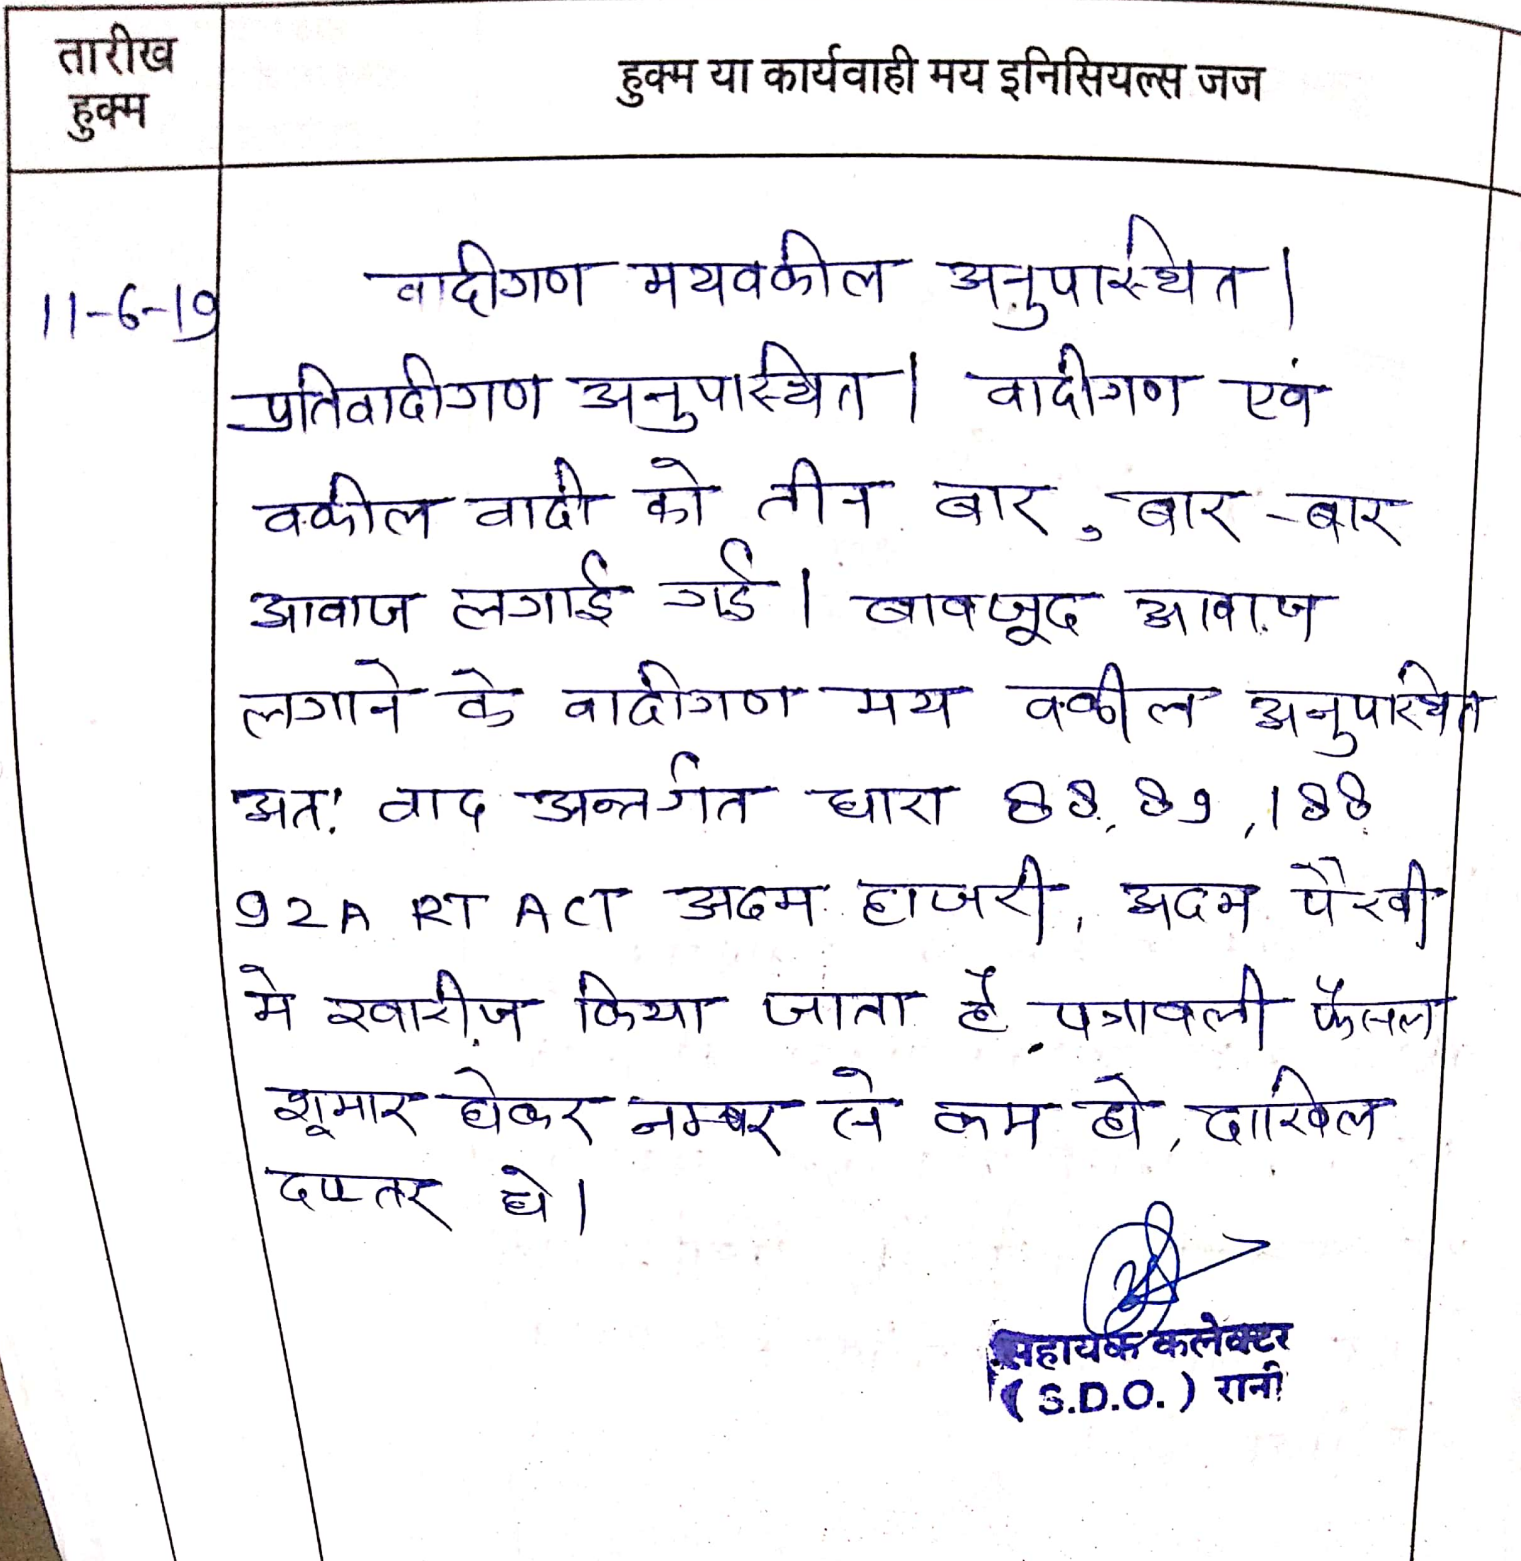 तारीख
हुक्म
हुक्म या कार्यवाही मय इनिसियल्स जज
11-6-19
वादीगण मयवकील अनुपास्थित।
प्रतिवादीगण अनुपास्थित। वादीगण एवं
वकील वादी को तीन बार, बार-बार
आवाज लगाई गई। बावजूद आवाज
लगाने के वादीगण मय वकील अनुपास्थित
अतः वाद अन्तर्गत धारा 88, 89, 188
92A RT ACT अदम हाजरी, अदम पैरवी
मे खारीज किया जाता है, पत्रावली फैसल
शूमार होकर नम्बर से कम हो, दाखिल
दफ्तर हो।
सहायक कलेक्टर
(S.D.O.) रानी